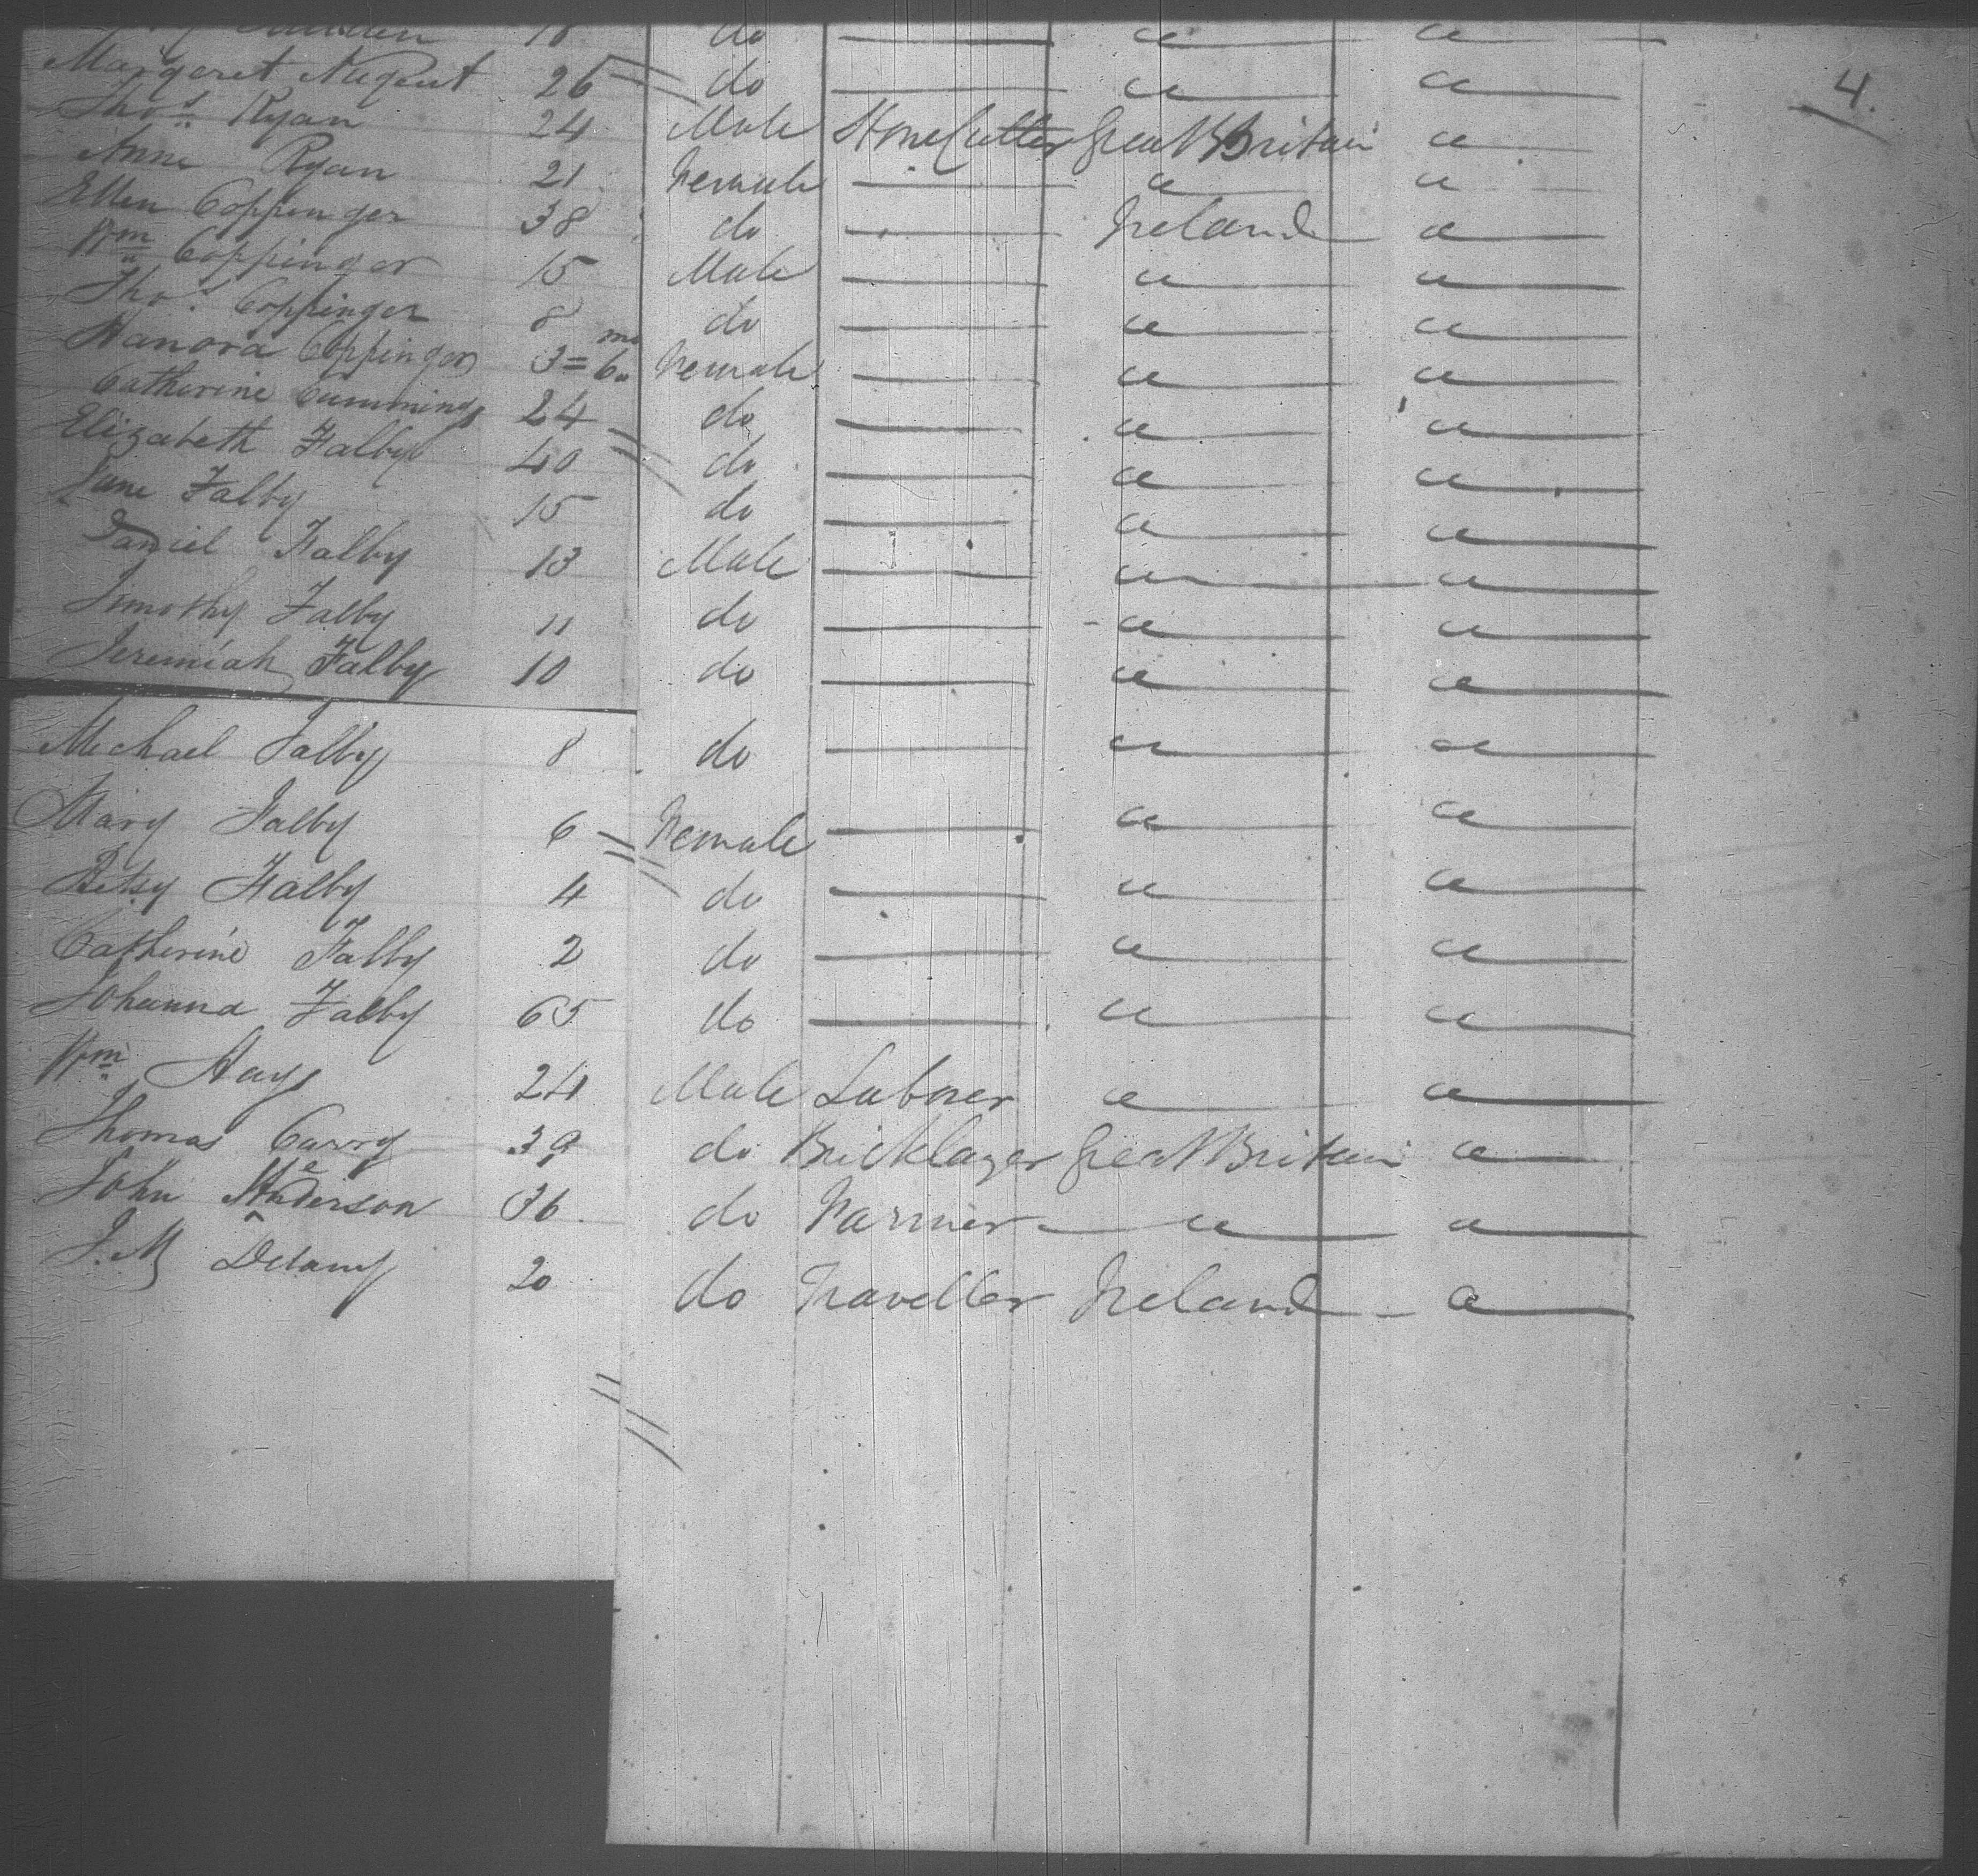 18 do a a
Margaret Nugent 26 do a a
4.
Thos Ryan 24 Male Stone Cutter Great Britain a
Anne Ryan 21 Female a a
Ellen Coppinger 38 do Ireland a
Wm Coppinger 15 Male a a
Thos Coppinger 8 do a a
Hanora Coppinger 3=6 mo Female a a
Catherine Cummings 24 do a a
Elizabeth Falby 40 do a a
Jane Falby 15 do a a
Daniel Falby 13 Male a a
Timothy Falby 11 do a a
Jeremiah Falby 10 do a a
Michael Falby 8 do a a
Mary Falby 6 Female a a
Betsy Falby 4 do a a
Catherine Falby 2 do a a
Johanna Falby 65 do a a
Wm Hays 24 Male Laborer a a
Thomas Curry 39 do Bricklayer Great Britain a
John Henderson 36 do Farmer a a
J. M Delany 20 do Traveller Ireland a